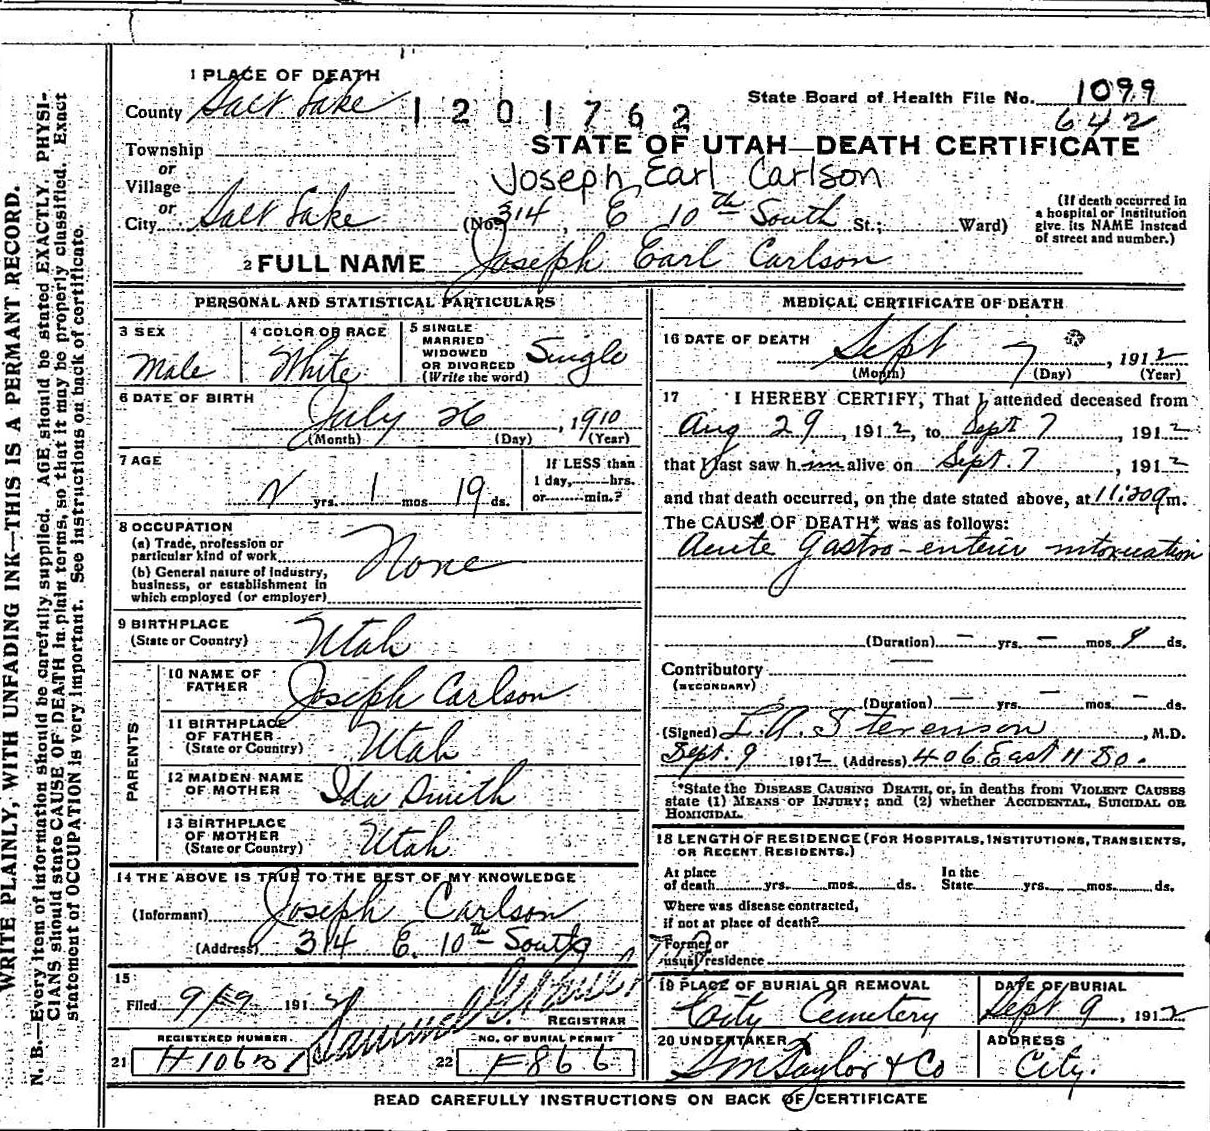 1 PLACE OF DEATH
County Salt Lake
1201762
State Board of Health File No. 1099
642
Township
or
Village
or
City Salt Lake
STATE OF UTAH—DEATH CERTIFICATE
Joseph Earl Carlson
(No. 314, E 10th South St.; Ward)
(If death occurred in
a hospital or institution
give its NAME instead
of street and number.)
2 FULL NAME Joseph Earl Carlson
PERSONAL AND STATISTICAL PARTICULARS
3 SEX
Male
4 COLOR OR RACE
White
5 SINGLE
MARRIED
WIDOWED
OR DIVORCED
(Write the word)
Single
6 DATE OF BIRTH
July 26, 1910
(Month) (Day) (Year)
7 AGE
yrs. 1 mos 19 ds.
If LESS than
1 day, hrs.
or min.?
8 OCCUPATION
(a) Trade, profession or
particular kind of work
(b) General nature of industry,
business, or establishment in
which employed (or employer)
None
9 BIRTHPLACE
(State or Country)
Utah
PARENTS
10 NAME OF
FATHER
Joseph Carlson
11 BIRTHPLACE
OF FATHER
(State or Country)
Utah
12 MAIDEN NAME
OF MOTHER
Ida Smith
13 BIRTHPLACE
OF MOTHER
(State or Country)
Utah
14 THE ABOVE IS TRUE TO THE BEST OF MY KNOWLEDGE
(Informant) Joseph Carlson
(Address) 314 E. 10th South
15
Filed 9/9 1912
Samuel G.
REGISTRAR
REGISTERED NUMBER.
21 H1063
NO. OF BURIAL PERMIT
22 F866
MEDICAL CERTIFICATE OF DEATH
16 DATE OF DEATH
Sept 7, 1912
(Month) (Day) (Year)
17 I HEREBY CERTIFY, That I attended deceased from
Aug 29, 1912, to Sept 7, 1912
that I last saw him alive on Sept. 7, 1912
and that death occurred, on the date stated above, at 11:20 a m.
The CAUSE OF DEATH* was as follows:
Acute Gastro-enteric intoxication
(Duration) — yrs. — mos. 9 ds.
Contributory —
(SECONDARY)
(Duration) — yrs. — mos. — ds.
(Signed) L.A. Stevenson, M.D.
Sept. 9 1912 (Address) 406 East 11 So.
*State the DISEASE CAUSING DEATH, or, in deaths from VIOLENT CAUSES
state (1) MEANS OF INJURY; and (2) whether ACCIDENTAL, SUICIDAL OR
HOMICIDAL.
18 LENGTH OF RESIDENCE (FOR HOSPITALS, INSTITUTIONS, TRANSIENTS,
OR RECENT RESIDENTS.)
At place
of death yrs. mos. ds.
In the
State yrs. mos. ds.
Where was disease contracted,
if not at place of death?
Former or
usual residence
19 PLACE OF BURIAL OR REMOVAL
City Cemetery
DATE OF BURIAL
Sept 9, 1912
20 UNDERTAKER
S M Taylor & Co
ADDRESS
City.
READ CAREFULLY INSTRUCTIONS ON BACK OF CERTIFICATE
WRITE PLAINLY, WITH UNFADING INK—THIS IS A PERMANT RECORD.
N. B.—Every item of information should be carefully supplied. AGE should be stated EXACTLY. PHYSI-
CIANS should state CAUSE OF DEATH in plain terms, so that it may be properly classified. Exact
statement of OCCUPATION is very important. See instructions on back of certificate.